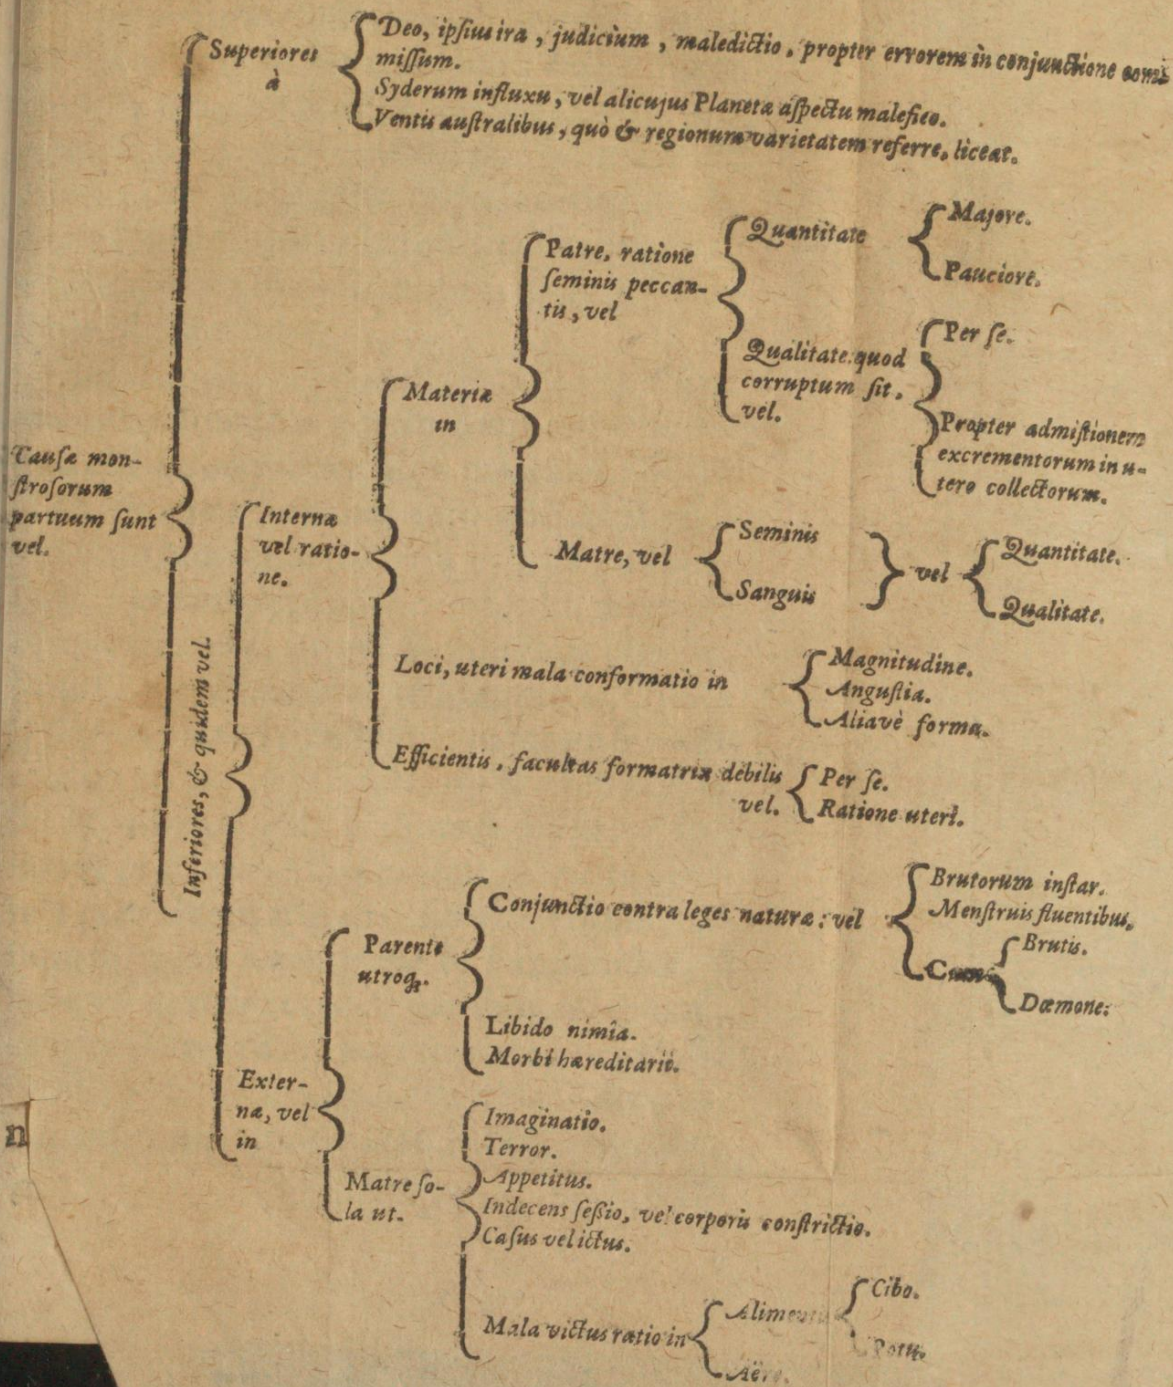 Superiores
à
Deo, ipſius ira, judicium, maledictio, propter errorem in conjunctione
miſſum.
Syderum influxu, vel alicujus Planetæ aſpectu malefico.
Ventis auſtralibus, quò & regionum varietatem referre, liceat.
Cauſæ mon-
ſtroſorum
partuum ſunt
vel.
Inferiores, & quidem vel.
Internæ
vel ratio-
ne.
Materiæ
in
Patre, ratione
ſeminis peccan-
tis, vel
Quantitate
Majore.
Pauciore.
Qualitate quod
corruptum ſit.
vel.
Per ſe.
Propter admiſtionem
excrementorum in u-
tero collectorum.
Matre, vel
Seminis
Sanguis
vel
Quantitate.
Qualitate.
Loci, uteri mala conformatio in
Magnitudine.
Anguſtia.
Aliavè forma.
Efficientis, facultas formatrix debilis
vel.
Per ſe.
Ratione uteri.
Exter-
næ, vel
in
Parente
utroq;.
Conjunctio contra leges naturæ: vel
Brutorum inſtar.
Menſtruis fluentibus.
Cum
Brutis.
Dæmone.
Libido nimia.
Morbi hæreditarii.
Matre ſo-
la ut.
Imaginatio.
Terror.
Appetitus.
Indecens ſeßio, vel corporis conſtrictio.
Caſus vel ictus.
Mala victus ratio in
Cibo.
Potu.
Aëre.
n